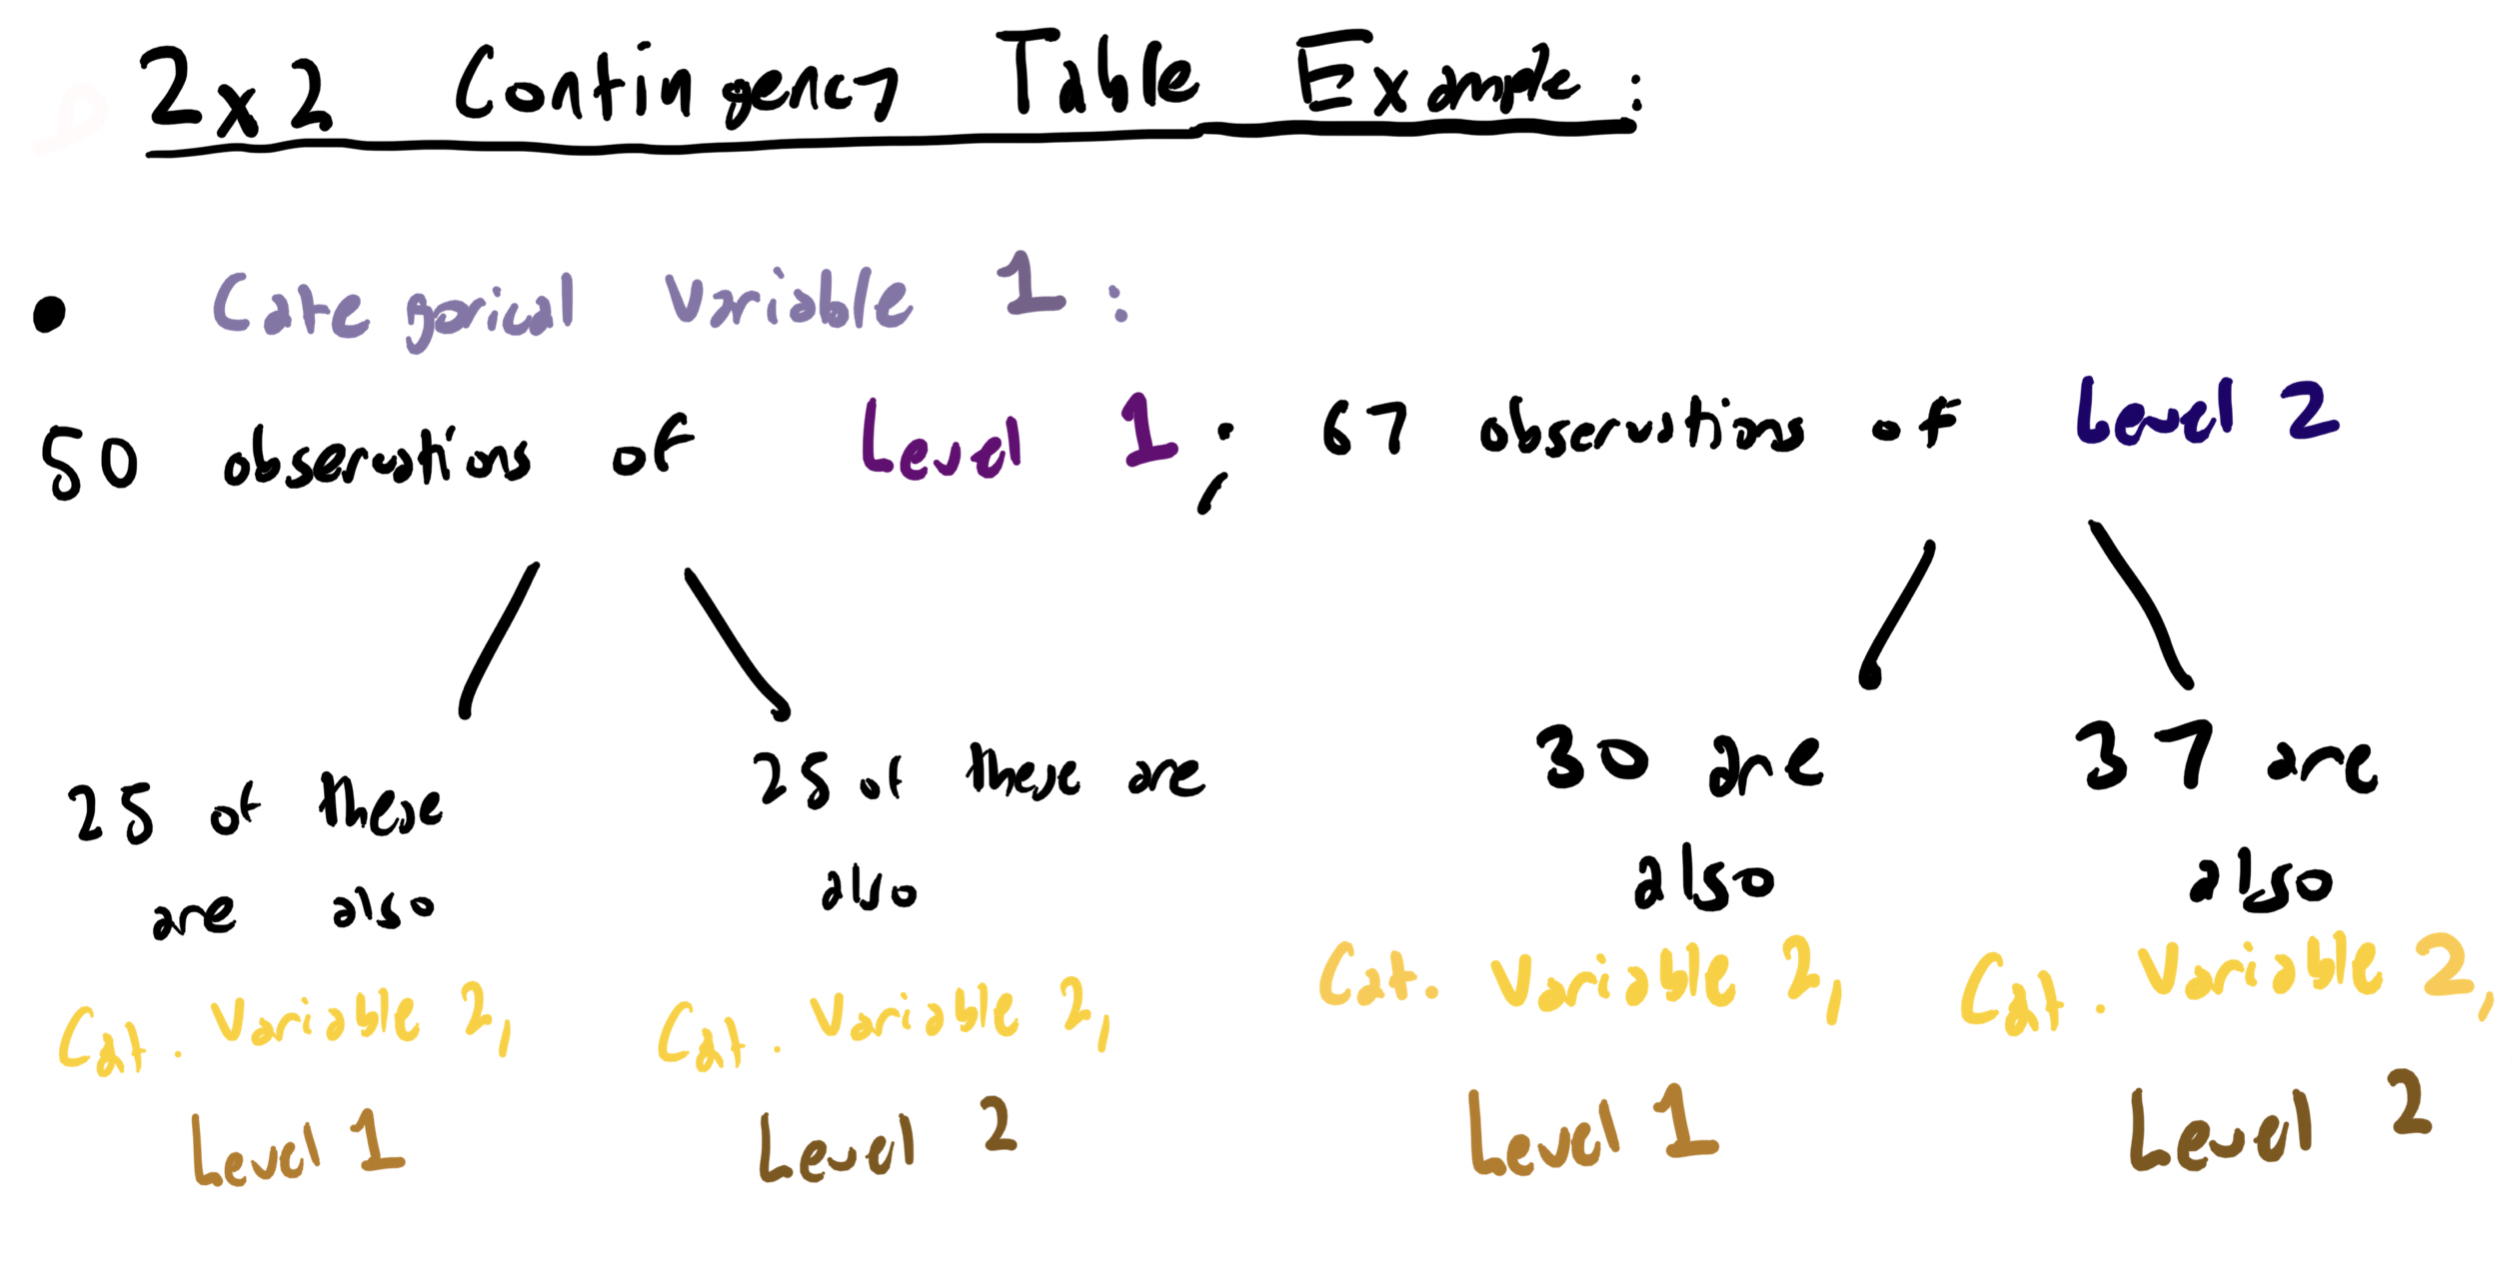 2x2 Contingency Table Example:
• Categorical Variable 1:
50 observations of Level 1; 67 observations of Level 2
25 of these
are also
Cat. Variable 2,
Level 1
25 of these are
also
Cat. Variable 2,
Level 2
30 are
also
Cat. Variable 2,
Level 1
37 are
also
Cat. Variable 2,
Level 2